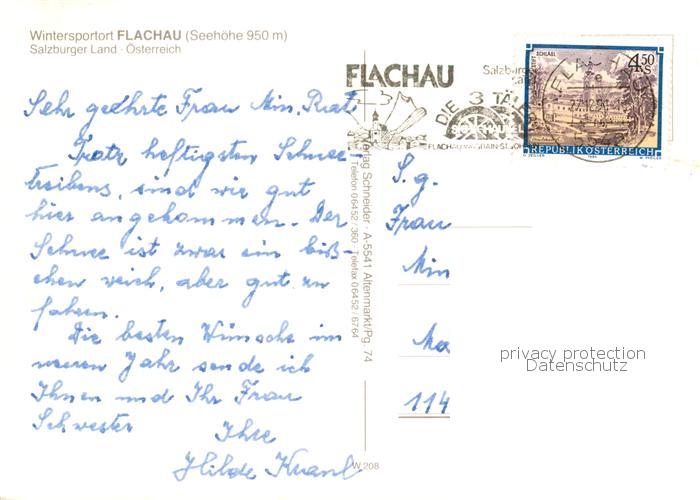 Wintersportort FLACHAU (Seehöhe 950 m)
Salzburger Land · Österreich
Sehr geehrte Frau Min. Rat
Trotz heftigsten Schnee-
treibens, sind wir gut
hier angekommen. Der
Schnee ist zwar ein biß-
chen weich, aber gut zu
fahren.
Die besten Wünsche im
neuen Jahr sende ich
Ihnen und Ihr Frau
Schwester
Ihre
Hilde
Verlag Schneider · A-5541 Altenmarkt/Pg. 74
Telefon 06452/360 · Telefax 06452/6764
W 208
FLACHAU
Salzburg
DIE 3 TÄLER
FLACHAU WAGRAIN ST. JOH
SCHLÄGL
4.50
S
REPUBLIK ÖSTERREICH
S. g.
Frau
Min
Ma
114
privacy protection
Datenschutz